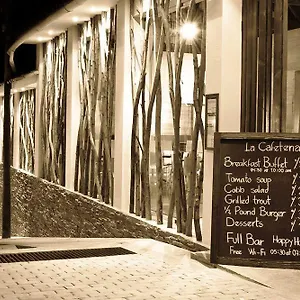 La Cafeteria
Breakfast Buffet
Tomato soup
Cobb salad
Grilled trout
½ Pound Burger
Desserts
Full Bar Happy
Free Wi-Fi